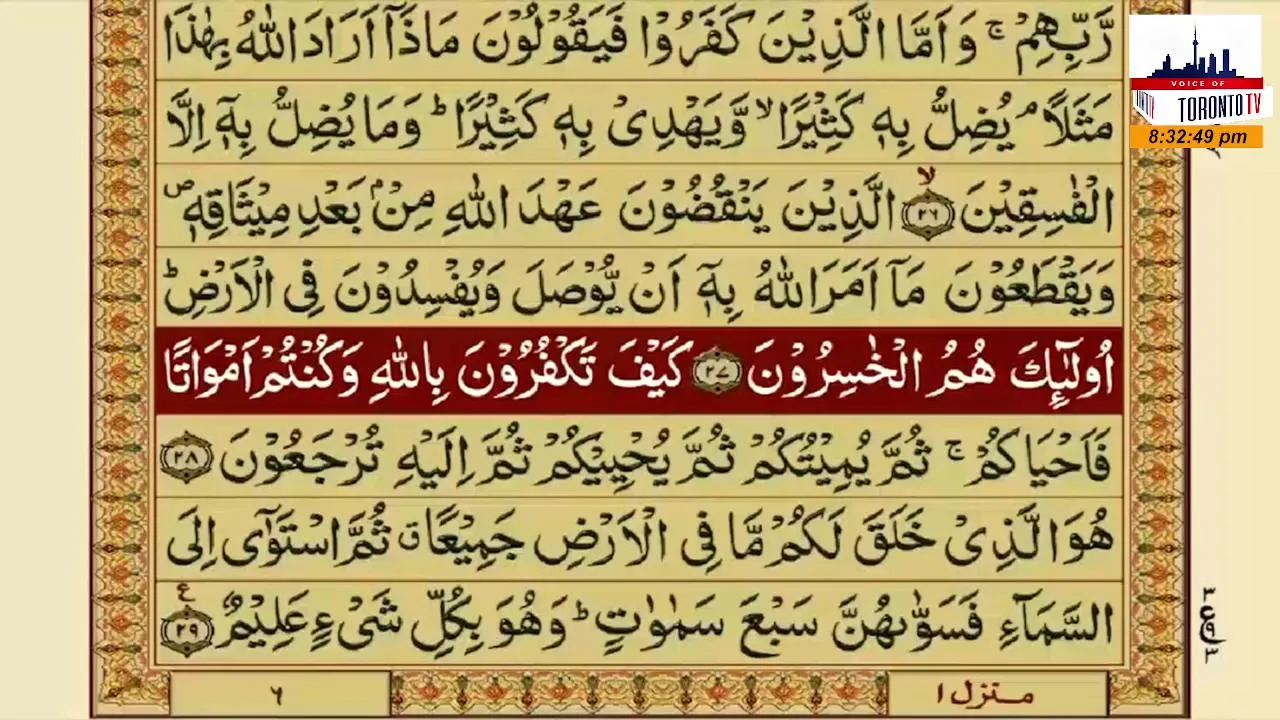 رَّبِّهِمْ ۚ وَاَمَّا الَّذِیْنَ كَفَرُوْا فَیَقُوْلُوْنَ مَاذَاۤ اَرَادَ اللّٰهُ بِهٰذَا
مَثَلًا ۘ یُضِلُّ بِهٖ كَثِیْرًا ۙ وَّیَهْدِیْ بِهٖ كَثِیْرًا ؕ وَمَا یُضِلُّ بِهٖۤ اِلَّا
الْفٰسِقِیْنَ ۙ﴿۲۶﴾ الَّذِیْنَ یَنْقُضُوْنَ عَهْدَ اللّٰهِ مِنْۢ بَعْدِ مِیْثَاقِهٖ ۪
وَیَقْطَعُوْنَ مَاۤ اَمَرَ اللّٰهُ بِهٖۤ اَنْ یُّوْصَلَ وَیُفْسِدُوْنَ فِی الْاَرْضِ ؕ
اُولٰٓئِكَ هُمُ الْخٰسِرُوْنَ ﴿۲۷﴾ كَیْفَ تَكْفُرُوْنَ بِاللّٰهِ وَكُنْتُمْ اَمْوَاتًا
فَاَحْیَاكُمْ ۚ ثُمَّ یُمِیْتُكُمْ ثُمَّ یُحْیِیْكُمْ ثُمَّ اِلَیْهِ تُرْجَعُوْنَ ﴿۲۸﴾
هُوَ الَّذِیْ خَلَقَ لَكُمْ مَّا فِی الْاَرْضِ جَمِیْعًا ۗ ثُمَّ اسْتَوٰۤی اِلَی
السَّمَآءِ فَسَوّٰىهُنَّ سَبْعَ سَمٰوٰتٍ ؕ وَهُوَ بِكُلِّ شَیْءٍ عَلِیْمٌ ﴿۲۹﴾ ع
منزل ۱
۶
VOICE OF
TORONTO TV
8:32:49 pm